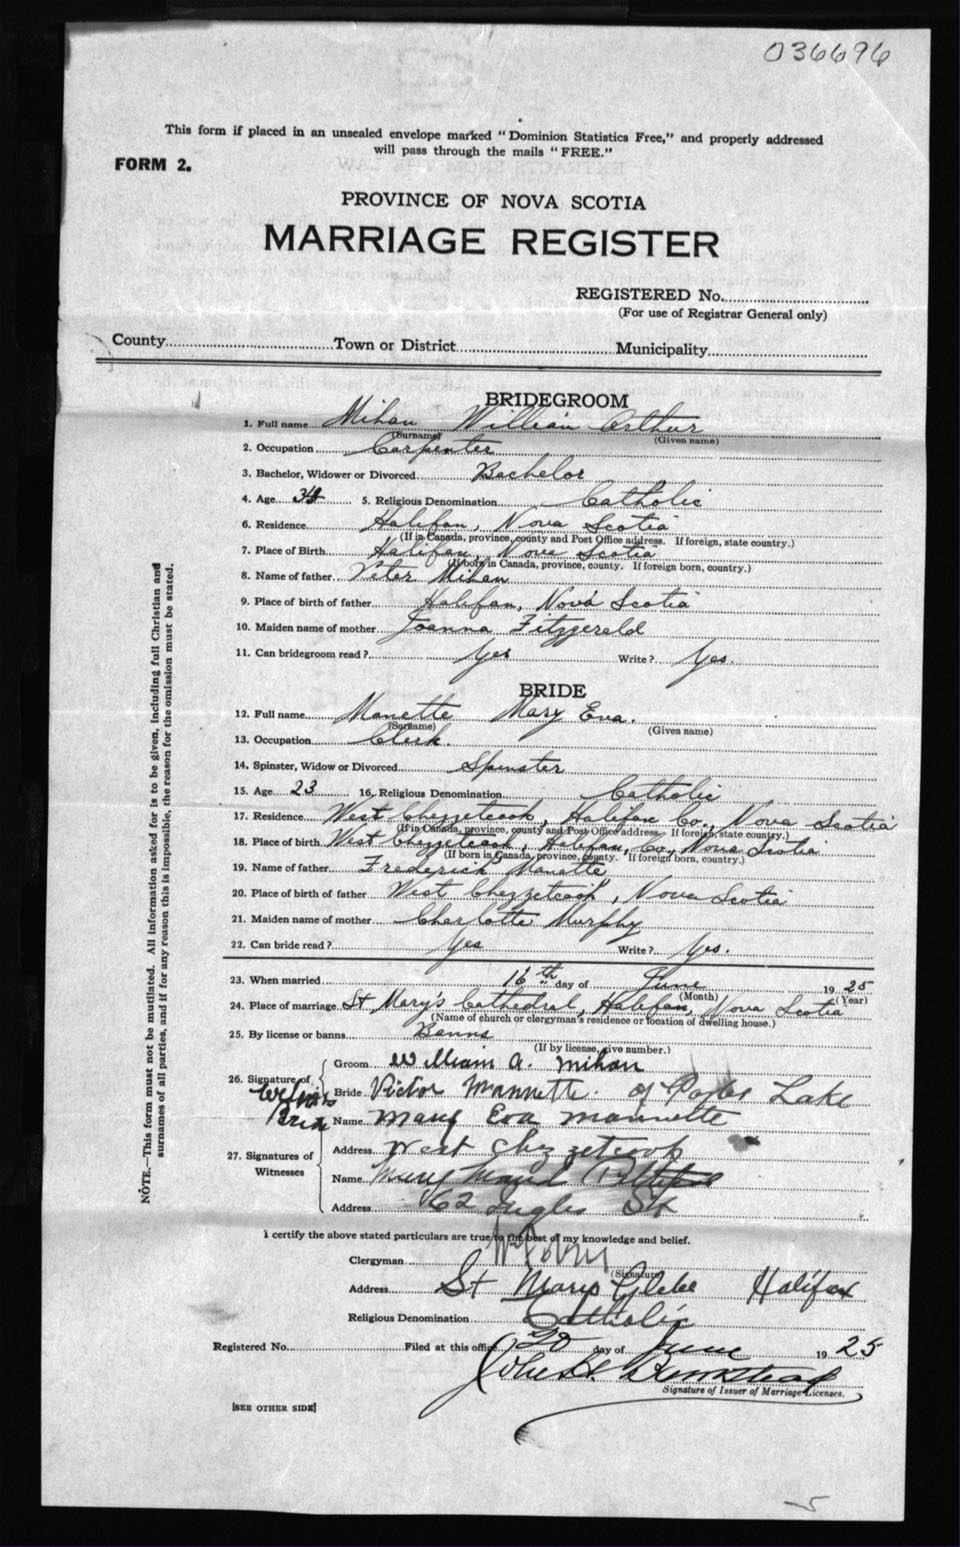 036696
This form if placed in an unsealed envelope marked "Dominion Statistics Free," and properly addressed
will pass through the mails "FREE."
FORM 2.
PROVINCE OF NOVA SCOTIA
MARRIAGE REGISTER
REGISTERED No.
(For use of Registrar General only)
County Town or District Municipality
BRIDEGROOM
1. Full name Mihan William Arthur
(Surname) (Given name)
2. Occupation Carpenter
3. Bachelor, Widower or Divorced Bachelor
4. Age 5. Religious Denomination Catholic
6. Residence Halifax, Nova Scotia
(If in Canada, province, county and Post Office address. If foreign, state country.)
7. Place of Birth Halifax, Nova Scotia
(If born in Canada, province, county. If foreign born, country.)
8. Name of father Peter Mihan
9. Place of birth of father Halifax, Nova Scotia
10. Maiden name of mother Joanna Fitzgerald
11. Can bridegroom read? Yes Write? Yes.
BRIDE
12. Full name Manette Mary Eva.
(Surname) (Given name)
13. Occupation Clerk.
14. Spinster, Widow or Divorced Spinster
15. Age 23 16. Religious Denomination Catholic
17. Residence West Chezzetcook, Halifax Co., Nova Scotia
(If in Canada, province, county and Post Office address. If foreign, state country.)
18. Place of birth West Chezzetcook, Halifax, Co., Nova Scotia
(If born in Canada, province, county. If foreign born, country.)
19. Name of father Frederick Manette
20. Place of birth of father West Chezzetcook, Nova Scotia
21. Maiden name of mother Charlotte Murphy
22. Can bride read? Yes Write? Yes.
23. When married 16th day of June 1925
(Month) (Year)
24. Place of marriage St Mary's Cathedral, Halifax, Nova Scotia
(Name of church or clergyman's residence or location of dwelling house.)
25. By license or banns Banns
(If by license, give number.)
26. Signature of Groom William A. Mihan
Bride Victor Mannette of Lake
Bride
27. Signatures of Witnesses
Name Mary Eva Mannette
Address West Chezzetcook
Name Mary Maud
Address 62 Inglis St
I certify the above stated particulars are true to the best of my knowledge and belief.
Clergyman
(Signature)
Address St Marys Glebe Halifax
Religious Denomination Catholic
Registered No. Filed at this office 20 day of June 1925
Signature of Issuer of Marriage Licenses.
[SEE OTHER SIDE]
NOTE.—This form must not be mutilated. All information asked for is to be given, including full Christian and
surnames of all parties, and if for any reason this is impossible, the reason for the omission must be stated.